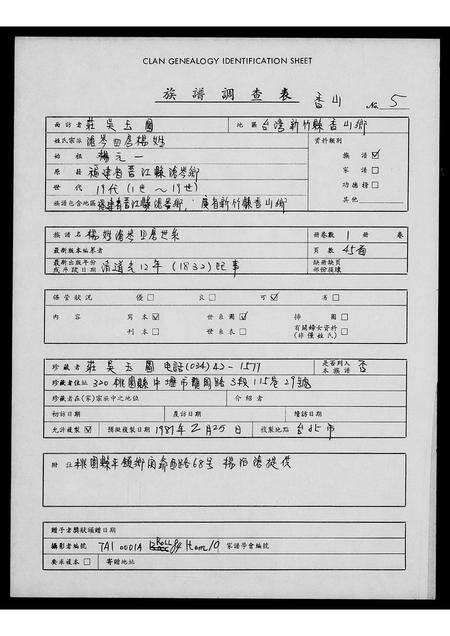 CLAN GENEALOGY IDENTIFICATION SHEET
族譜調查表 香山 No. 5
面訪者 莊吳玉圖 地區 台灣新竹縣香山鄉
姓氏宗派 滄岑四房楊姓 資料類別
始祖 楊元一 族譜 ☑
原籍 福建省晋江縣滄岑鄉 家譜 □
世代 19代(1世~19世) 功德榜 □
族譜包含地區 福建省晋江縣滄岑鄉, 廣省新竹縣香山鄉 其他
族譜名 楊姓滄岑四房世系 冊卷數 1 冊 卷
最新版本編纂者 頁數 45面
最新出版年份或手錄日期 清道光12年(1832)記事 缺冊缺頁部份損壞
保管狀況 優 □ 良 □ 可 ☑ 劣 □
內容 寫本 ☑ 世系圖 ☑ 插圖 □
刊本 □ 世系表 □ 有關婦女資料(非僅姓氏) □
珍藏者 莊吳玉圖 電話(034)42-1577 是否列入本族譜 否
珍藏者住址 320 桃園縣中壢市龍岡路3段115巷29號
珍藏者在(家)宗族中之地位 介紹者
初訪日期 復訪日期 續訪日期
允許複製 ☑ 擬複製日期 1989年2月25日 複製地點 台北市
附註 桃園縣平鎮鄉南商路68号 楊滄提供
贈予者獎狀頒贈日期
攝影者編號 TAI 0001A ROLL 84 Item 10 家譜學會編號
要求複本 □ 寄贈地址